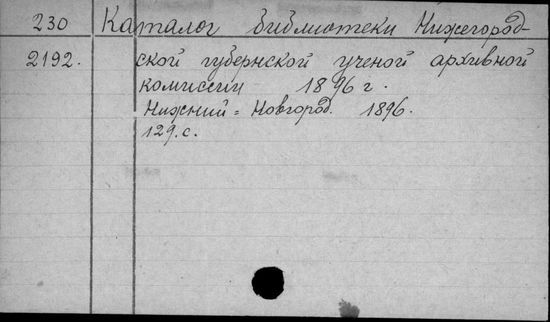 230 Каталог библиотеки Нижегород-
2192. ской губернской ученой архивной
комиссии 1896 г.
Нижний=Новгород. 1896.
129.с.